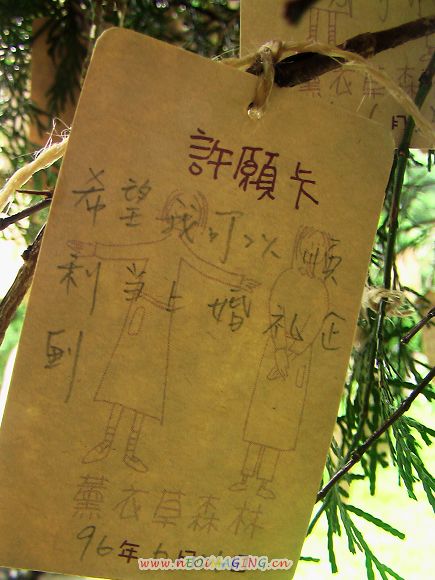 許願卡
希望我可以順
利当上婚礼企
劃
薰衣草森林
96年 月 日
薰衣草森
月
www.nEOiMAGING.cn